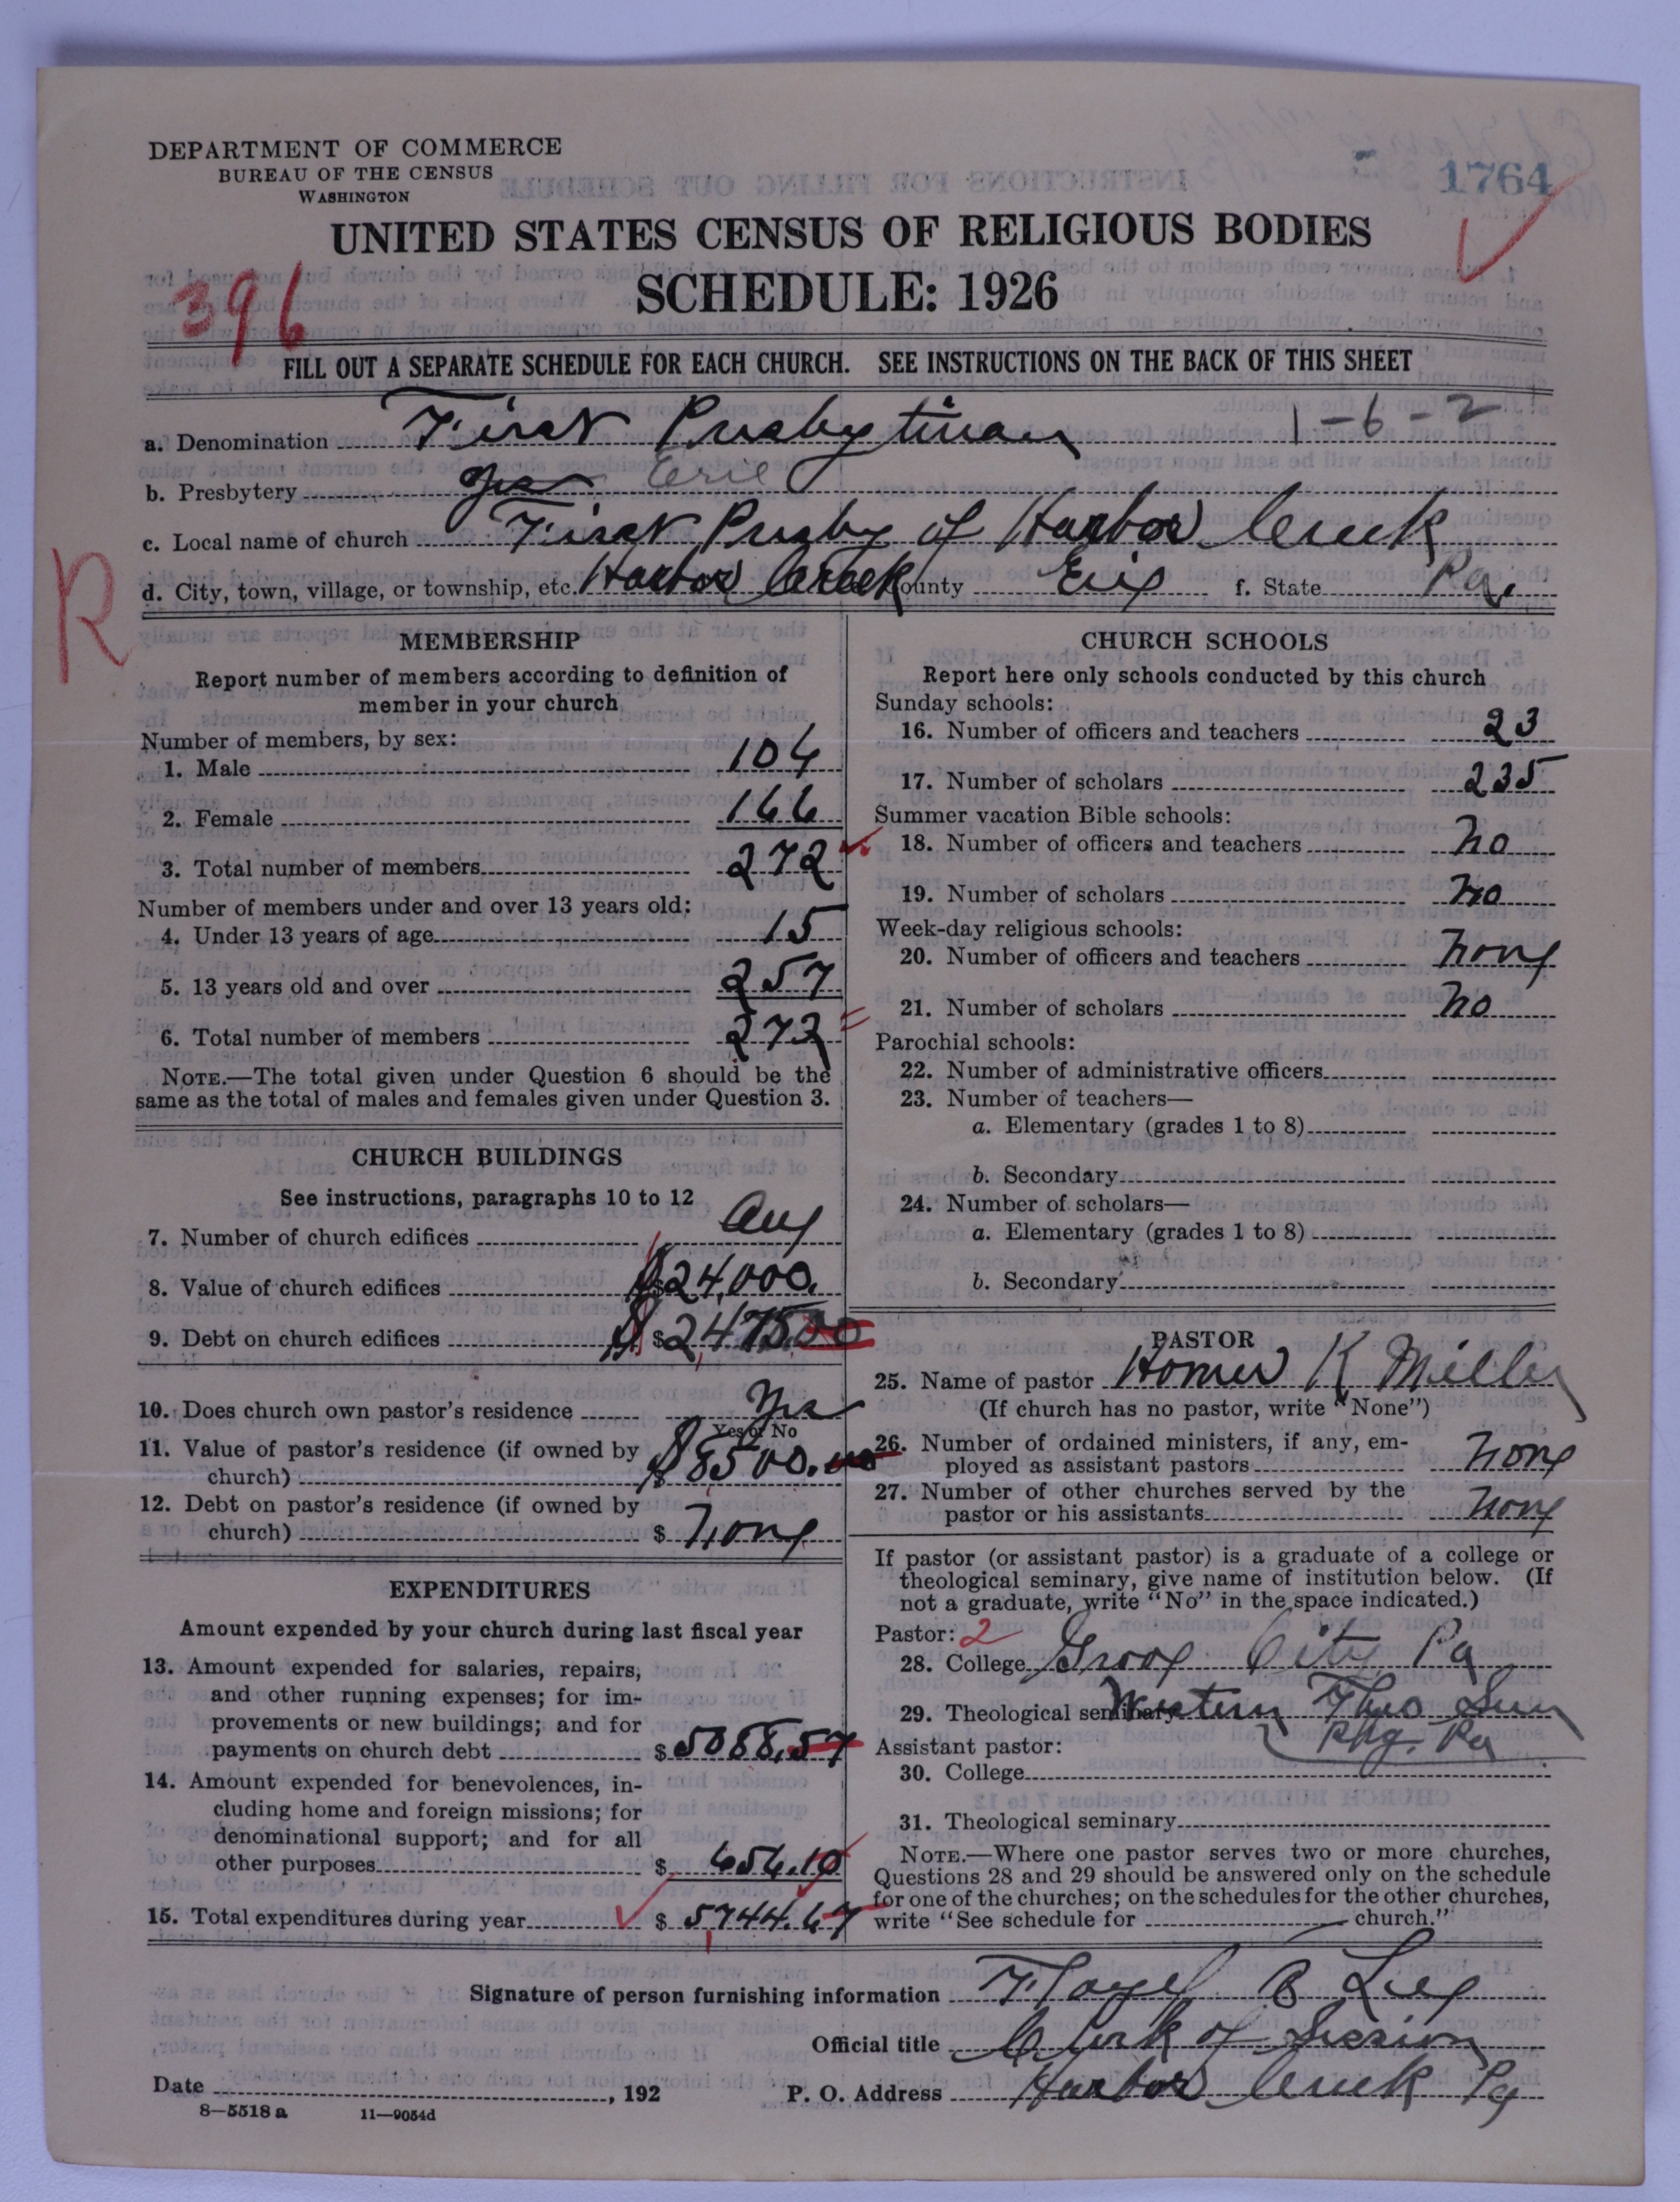 DEPARTMENT OF COMMERCE
BUREAU OF THE CENSUS
WASHINGTON
1764
UNITED STATES CENSUS OF RELIGIOUS BODIES
SCHEDULE: 1926
396
FILL OUT A SEPARATE SCHEDULE FOR EACH CHURCH. SEE INSTRUCTIONS ON THE BACK OF THIS SHEET
a. Denomination First Presbyterian 1-6-2
b. Presbytery Yes Erie
c. Local name of church First Presby of Harbor Creek
d. City, town, village, or township, etc. Harbor Creek County Erie f. State Pa.
R
MEMBERSHIP
Report number of members according to definition of
member in your church
Number of members, by sex:
1. Male 104
2. Female 166
3. Total number of members 272
Number of members under and over 13 years old:
4. Under 13 years of age 15
5. 13 years old and over 257
6. Total number of members 272
NOTE.—The total given under Question 6 should be the
same as the total of males and females given under Question 3.
CHURCH BUILDINGS
See instructions, paragraphs 10 to 12
7. Number of church edifices
8. Value of church edifices $24,000.
9. Debt on church edifices $2,475.00
10. Does church own pastor's residence Yes
Yes or No
11. Value of pastor's residence (if owned by
church) $8500.00
12. Debt on pastor's residence (if owned by
church) $ None
EXPENDITURES
Amount expended by your church during last fiscal year
13. Amount expended for salaries, repairs,
and other running expenses; for im-
provements or new buildings; and for
payments on church debt $5088.57
14. Amount expended for benevolences, in-
cluding home and foreign missions; for
denominational support; and for all
other purposes $656.10
15. Total expenditures during year $5,744.67
CHURCH SCHOOLS
Report here only schools conducted by this church
Sunday schools:
16. Number of officers and teachers 23
17. Number of scholars 235
Summer vacation Bible schools:
18. Number of officers and teachers No
19. Number of scholars No
Week-day religious schools:
20. Number of officers and teachers None
21. Number of scholars No
Parochial schools:
22. Number of administrative officers
23. Number of teachers—
a. Elementary (grades 1 to 8)
b. Secondary
24. Number of scholars—
a. Elementary (grades 1 to 8)
b. Secondary
PASTOR
25. Name of pastor Homer K Miller
(If church has no pastor, write "None")
26. Number of ordained ministers, if any, em-
ployed as assistant pastors None
27. Number of other churches served by the
pastor or his assistants None
If pastor (or assistant pastor) is a graduate of a college or
theological seminary, give name of institution below. (If
not a graduate, write "No" in the space indicated.)
Pastor: 2
28. College Grove City Pa
29. Theological seminary Western Theo Sem
Pbg. Pa
Assistant pastor:
30. College
31. Theological seminary
NOTE.—Where one pastor serves two or more churches,
Questions 28 and 29 should be answered only on the schedule
for one of the churches; on the schedules for the other churches,
write "See schedule for church."
Signature of person furnishing information B Lee
Official title Clerk of Session
Date , 192 P. O. Address Harbor Creek Pa
8—5518 a 11—9054d